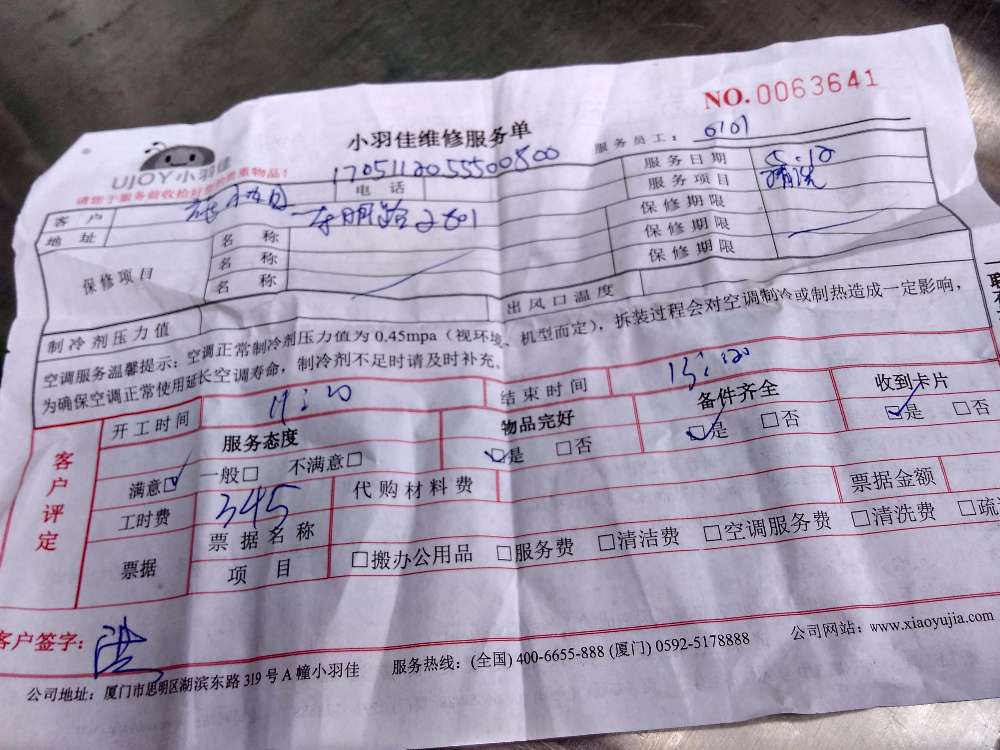 NO.0063641
小羽佳维修服务单
服务员工： 0101
UJOY小羽佳
请您于服务前收拾好您的贵重物品！
17051120555500800
客户 电话 服务日期 5.12
地址 2601 服务项目 清洗
保修项目 名称 保修期限
名称 保修期限
名称 保修期限
制冷剂压力值 出风口温度
空调服务温馨提示：空调正常制冷剂压力值为 0.45mpa（视环境、机型而定），拆装过程会对空调制冷或制热造成一定影响，
为确保空调正常使用延长空调寿命，制冷剂不足时请及时补充。
客户评定
开工时间 11:20 结束时间 15:20
服务态度 物品完好 备件齐全 收到卡片
满意☑ 一般□ 不满意□ ☑是 □否 ☑是 □否 ☑是 □否
工时费 345 代购材料费 票据金额
票据 票据名称 项目 □搬办公用品 □服务费 □清洁费 □空调服务费 □清洗费 □疏
客户签字： 洪
公司地址：厦门市思明区湖滨东路319号A幢小羽佳 服务热线：(全国) 400-6655-888 (厦门) 0592-5178888 公司网站：www.xiaoyujia.com